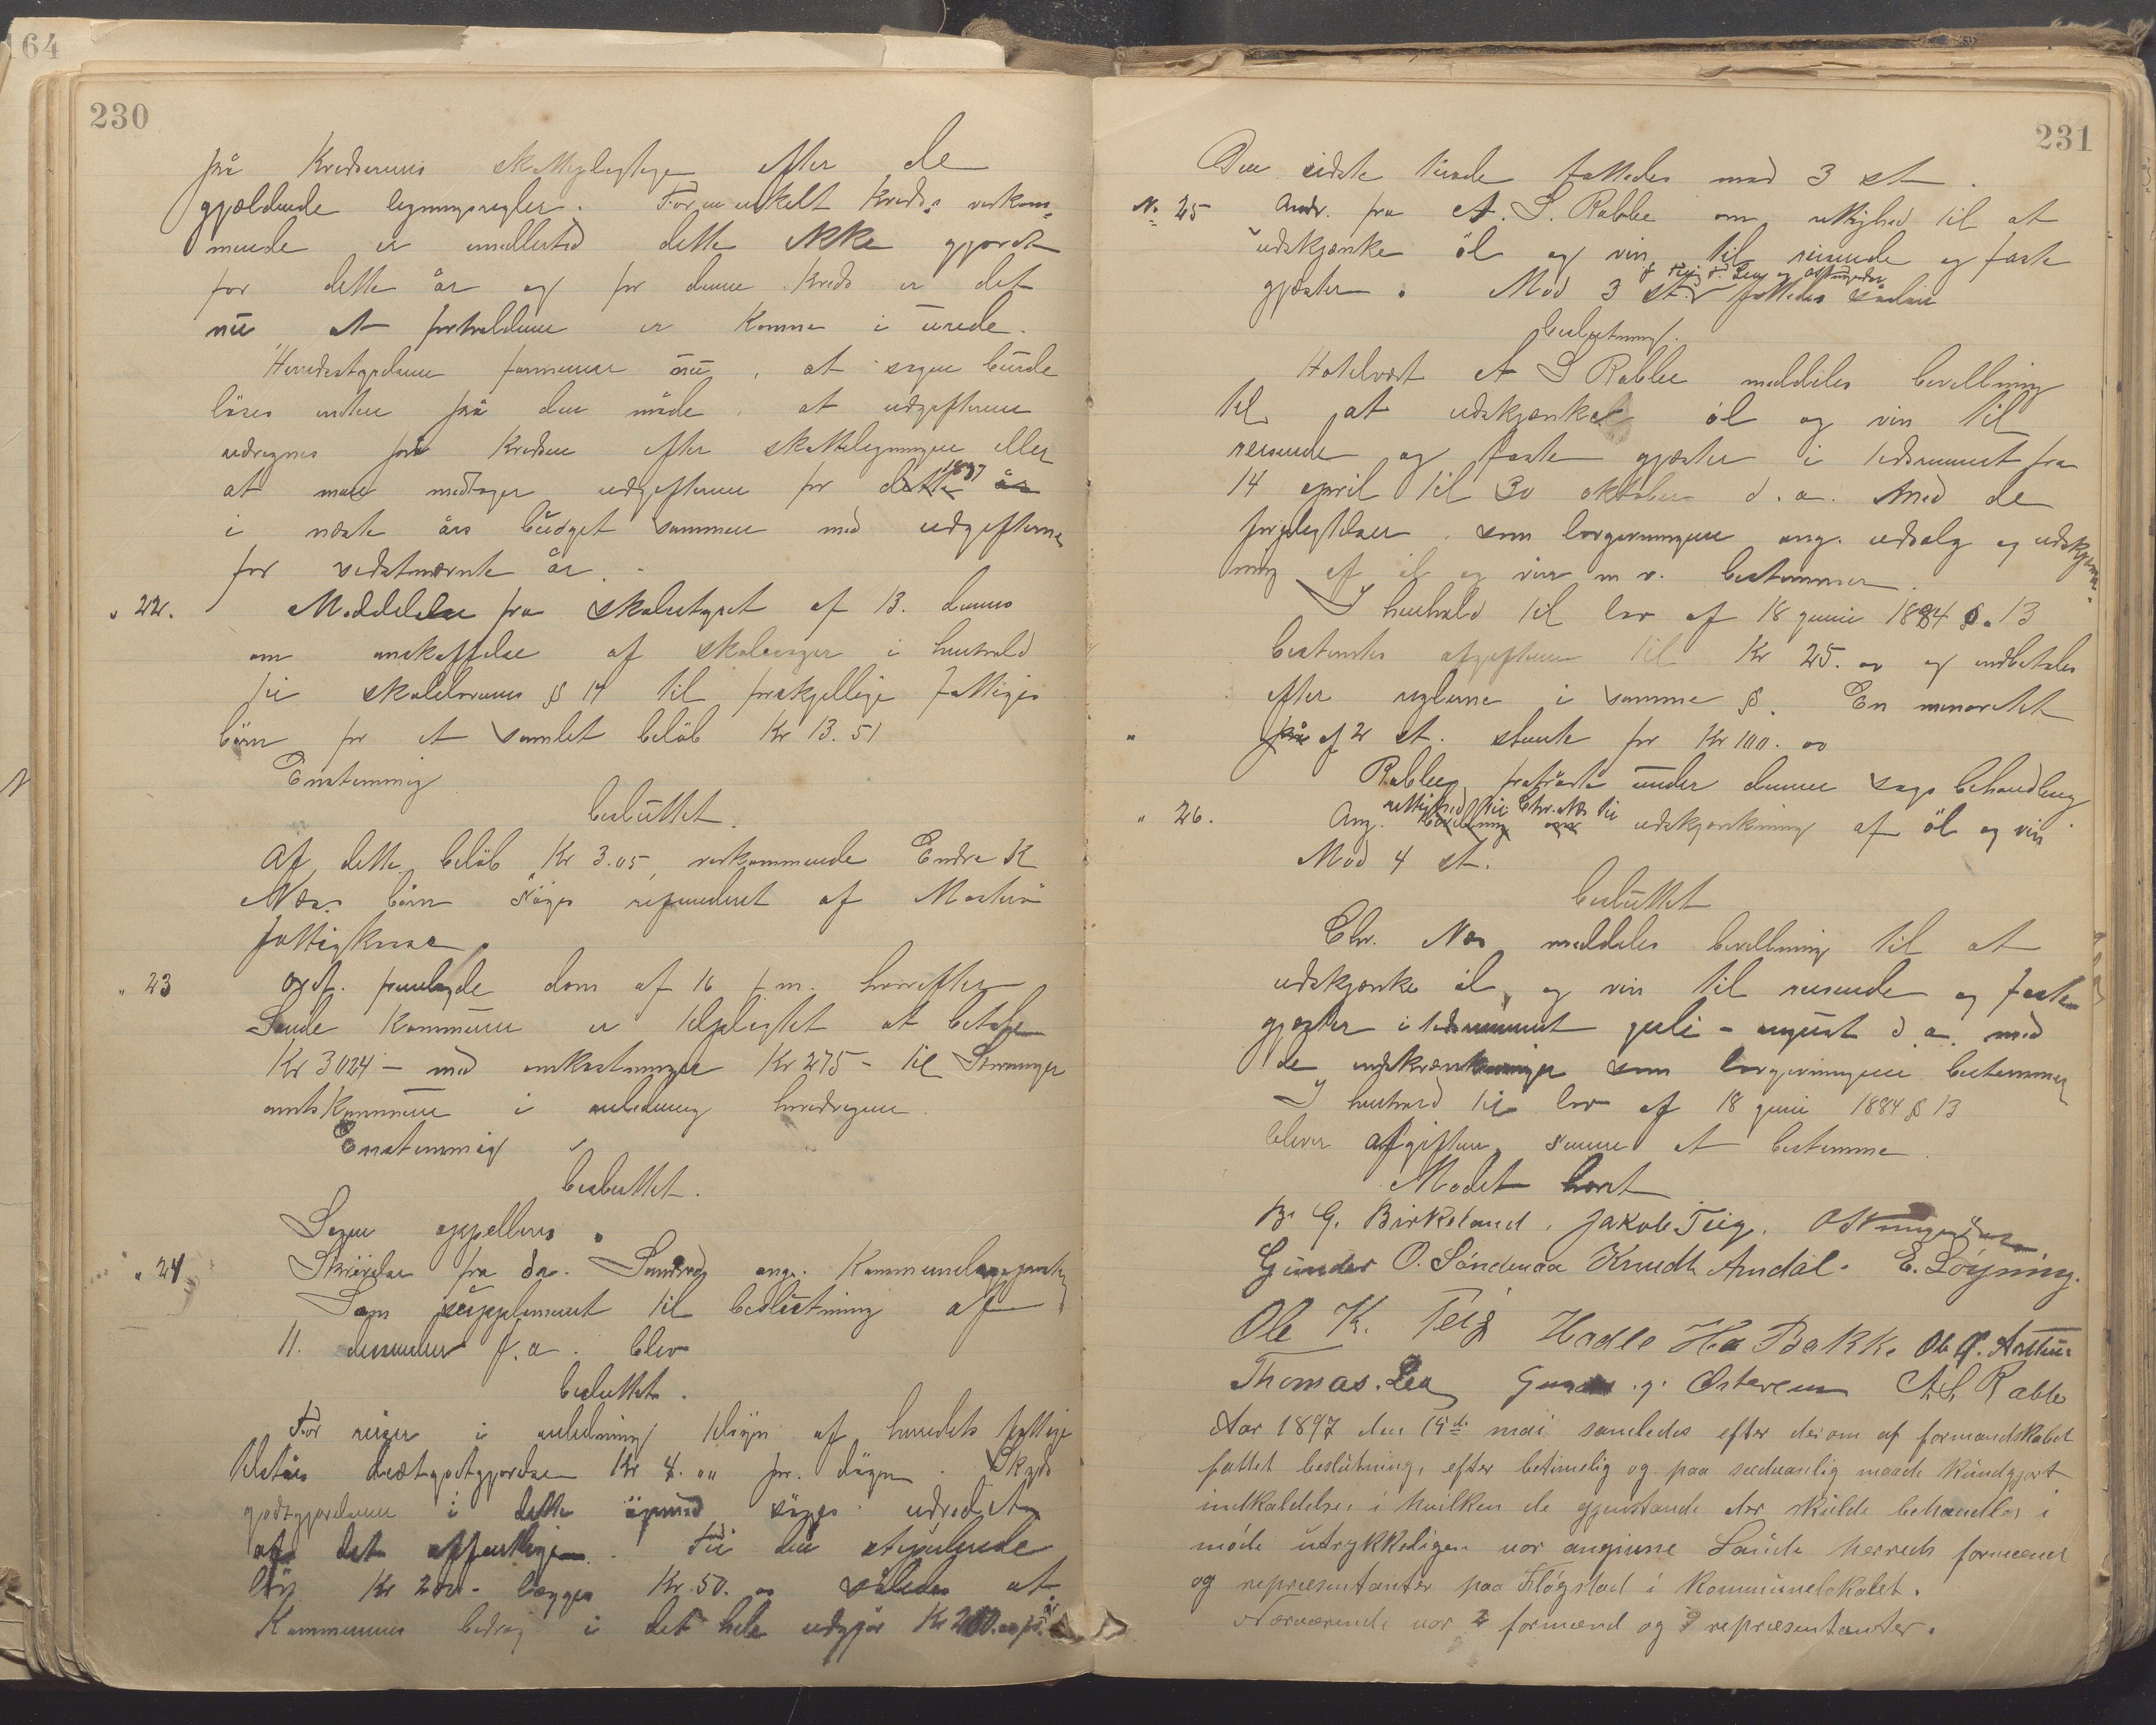 164
230
på Kredsernes skattepligtige efter de
gjældende ligningsregler. For en enkelt kreds vedkom-
mende er imidlertid dette ikke gjordt
for dette år og for denne kreds er det
nu at forholdene er komne i urede.
Herredsstyrelsen formener nu, at sagen burde
löses enten på den måde, at udgifterne
udregnes på kredsen efter skatteligningen eller
at man medtager udgifterne for dette år 1897
i næste års budget sammen med udgifterne
for sidstnævnte år.
" 22. Meddelelse fra skolestyret af 13. dennes
om anskaffelse af skolesager i henhold
til skolelovens § 14 til forskjellige fattiges
börn for et samlet belöb Kr 13.51
Enstemmig
besluttet.
Af dette belöb Kr 3.05, vedkommende Endre K
Næs börn söges refunderet af Mosterö
fattigkasse.
" 23 Ordf. fremlagde dom af 16 f.m. hvorefter
Sande kommune er tilpligtet at betale
Kr 3024 - med omkostninger Kr 275 - til Stavanger
amtskommune i anledning
Enstemmig
besluttet.
Sagen appelleres.
" 24 Skrivelse fra dr. Sundvor ang. Kommunelægeposten
Som supplement til beslutning af
11. desember f.a. blev
besluttet.
For reiser i anledning tilsyn af herredets fattige
tilståes diætgodtgjørelse Kr 4.00 pr. dögn. Skyds
godtgjørelsen i dette öiemed söges udredet
af det offentlige. Til den stipulerede
lön Kr 200 - lægges Kr. 50.00 således at
Kommunens bidrag i det hele udgjør Kr 250.00 pr. år
231
Den sidste tirade fattedes mod 3 st.
No 25 Andr. fra A. S. Rabbe om rettighed til at
udskjænke öl og vin til reisende og faste
gjæster. Mod 3 st. fattedes sådan
beslutning.
Hotelvært A S Rabbe meddeles bevilling
til at udskjænke öl og vin til
reisende og faste gjæster i tidsrummet fra
14 april til 30 oktober d.a. med de
forpligtelser som lovgivningen ang. udsalg og udskjænk-
ning af öl og vin m v. bestemmer.
I henhold til lov af 18 juni 1884 § 13
bestemtes afgiften til Kr 25.00 og indbetales
efter reglerne i samme §. En minoritet
" på af 2 st. stemte for Kr 100.00
Rabbe fratrådte under denne sags behandling
" 26. Ang. bevilling rettighed for Chr. Næs til udskjænkning af öl og vin
Mod 4 st.
besluttet
Chr. Næs meddeles bevilling til at
udskjænke öl og vin til reisende og faste
gjæster i tidsrummet juli - august d.a. med
de indskrænkninger som lovgivningen bestemmer
I henhold til lov af 18 juni 1884 § 13
bliver afgiften senere at bestemme.
Mødet hævet
B. G. Birkeland. Jakob Teig.
Gunder O. Sándenaa Knudt Amdal. E. Löyning.
Ole K. Teig Hadle Ha Bakke
Thomas. Lea G. Østerem A. S. Rabbe
Aar 1897 den 15de mai samledes efter derom af formandskabet
fattet beslutning, efter betimelig og paa sædvanlig maade kundgjort
indkaldelse, i hvilken de gjenstande der skulde behandles i
möde udtrykkeligen var angivne Saude herreds formænd
og repræsentanter paa Fløgstad i kommunelokalet.
Nærværende var 2 formænd og 9 repræsentanter.